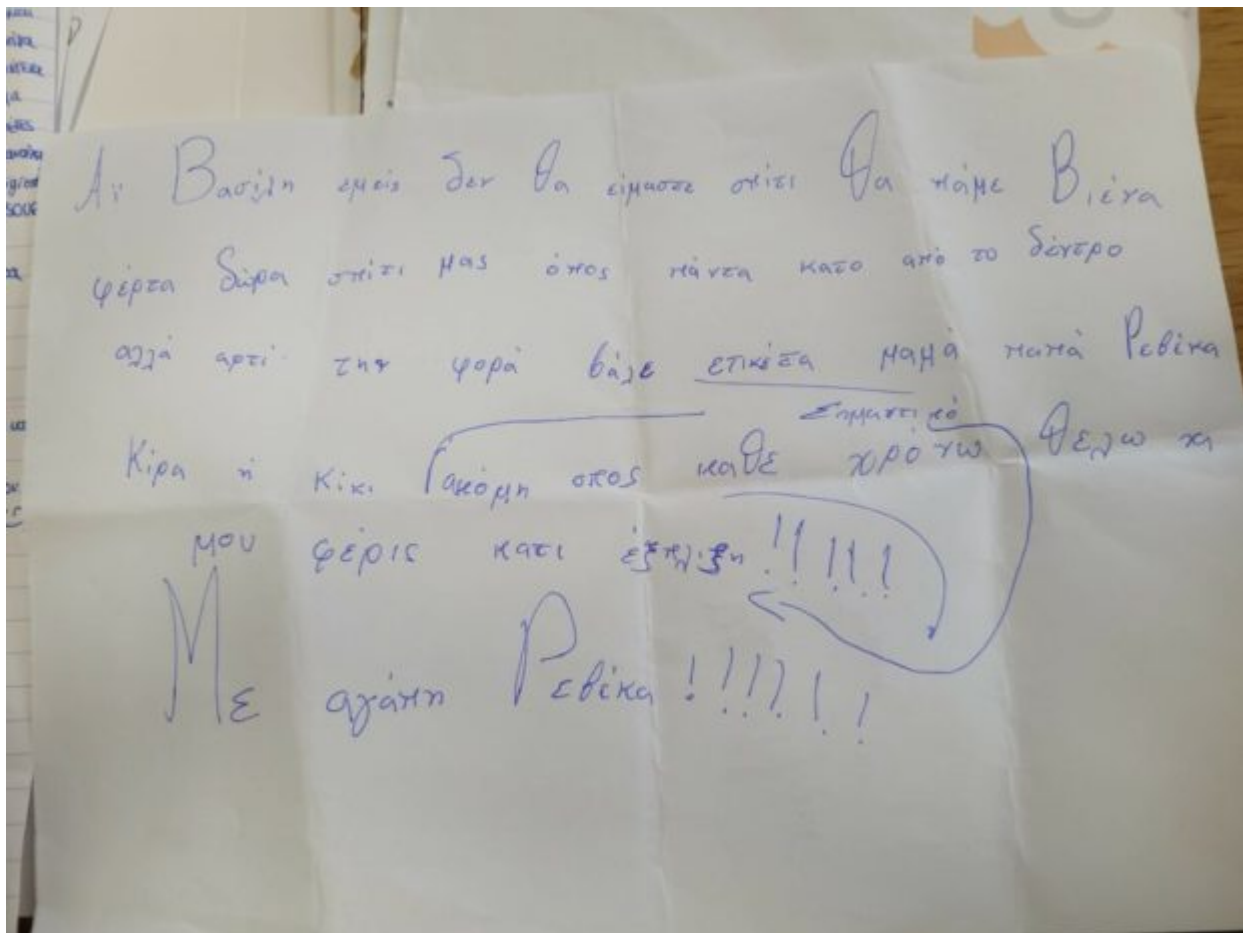 Αι Βασίλη εμείς δεν θα είμαστε σπίτι θα πάμε Βιένα
φέρτα δώρα σπίτι μας όπος πάντα κατο από το δέντρο
αλλά αρτί την φορά βάλε ετικέτα μαμά παπά Ρεβέκα
Σημαντικό
Κίρα ή Κίκι ακόμη οπος καθε χρόνω θελω να
μου φέρις κατι έξπλιξη !!!!!
Με αγάπη Ρεβέκα !!!!!!